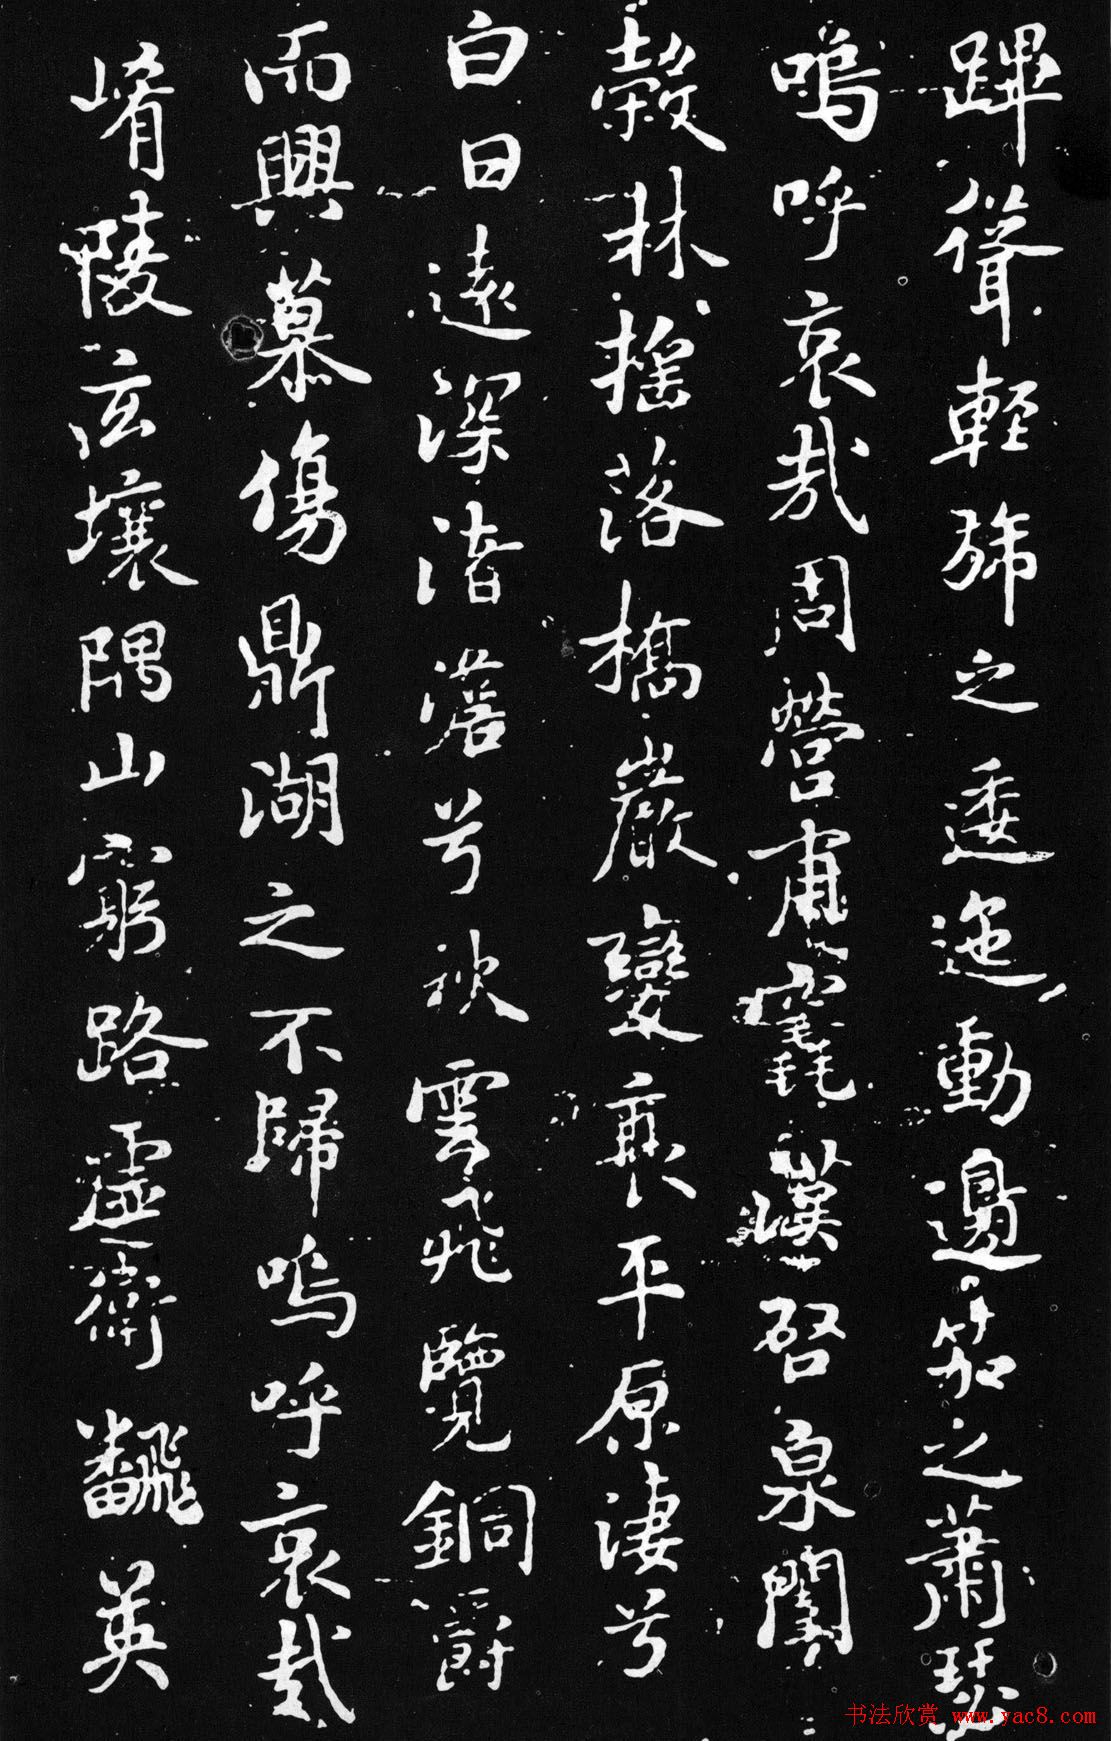 蹕聳輕旆之逶迤動邊笳之蕭瑟
嗚呼哀哉周營肅竁漢啓泉闈
穀林搖落橋巖變衰平原淒兮
白日遠深渚澹兮秋雲飛覽銅爵
而興慕傷鼎湖之不歸嗚呼哀哉
崤陵泫壤隅山窮路虛衛飜英
书法欣赏 www.yac8.com